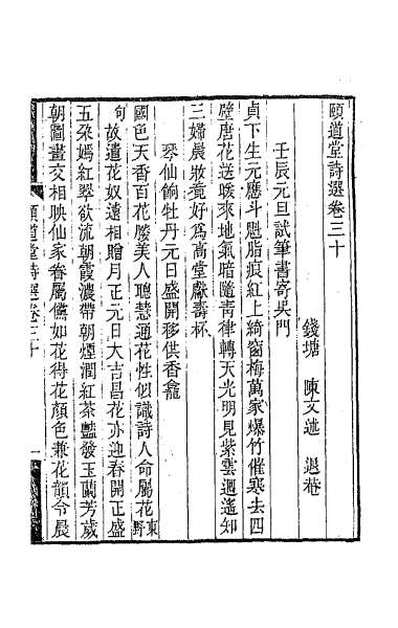 頤道堂詩選卷三十
錢塘　陳文述　退菴
壬辰元旦試筆書寄吳門
貞下生元應斗魁脂痕紅上綺窗梅萬家爆竹催寒去四
壁唐花送暖來地氣暗隨青律轉天光明見紫雲迴遙知
三婦晨妝竟好爲高堂獻壽杯
琴仙餉牡丹元日盛開移供香龕
國色天香百花勝美人聰慧通花性似識詩人命屬花東野
句故遣花奴遠相贈月正元日大吉昌花亦迎春開正盛
五朶嫣紅翠欲流朝霞濃帶朝煙潤紅茶豔發玉蘭芳歲
朝圖畫交相映仙家眷屬儷如花得花顏色兼花韻令晨
頤道堂詩選卷三十
一